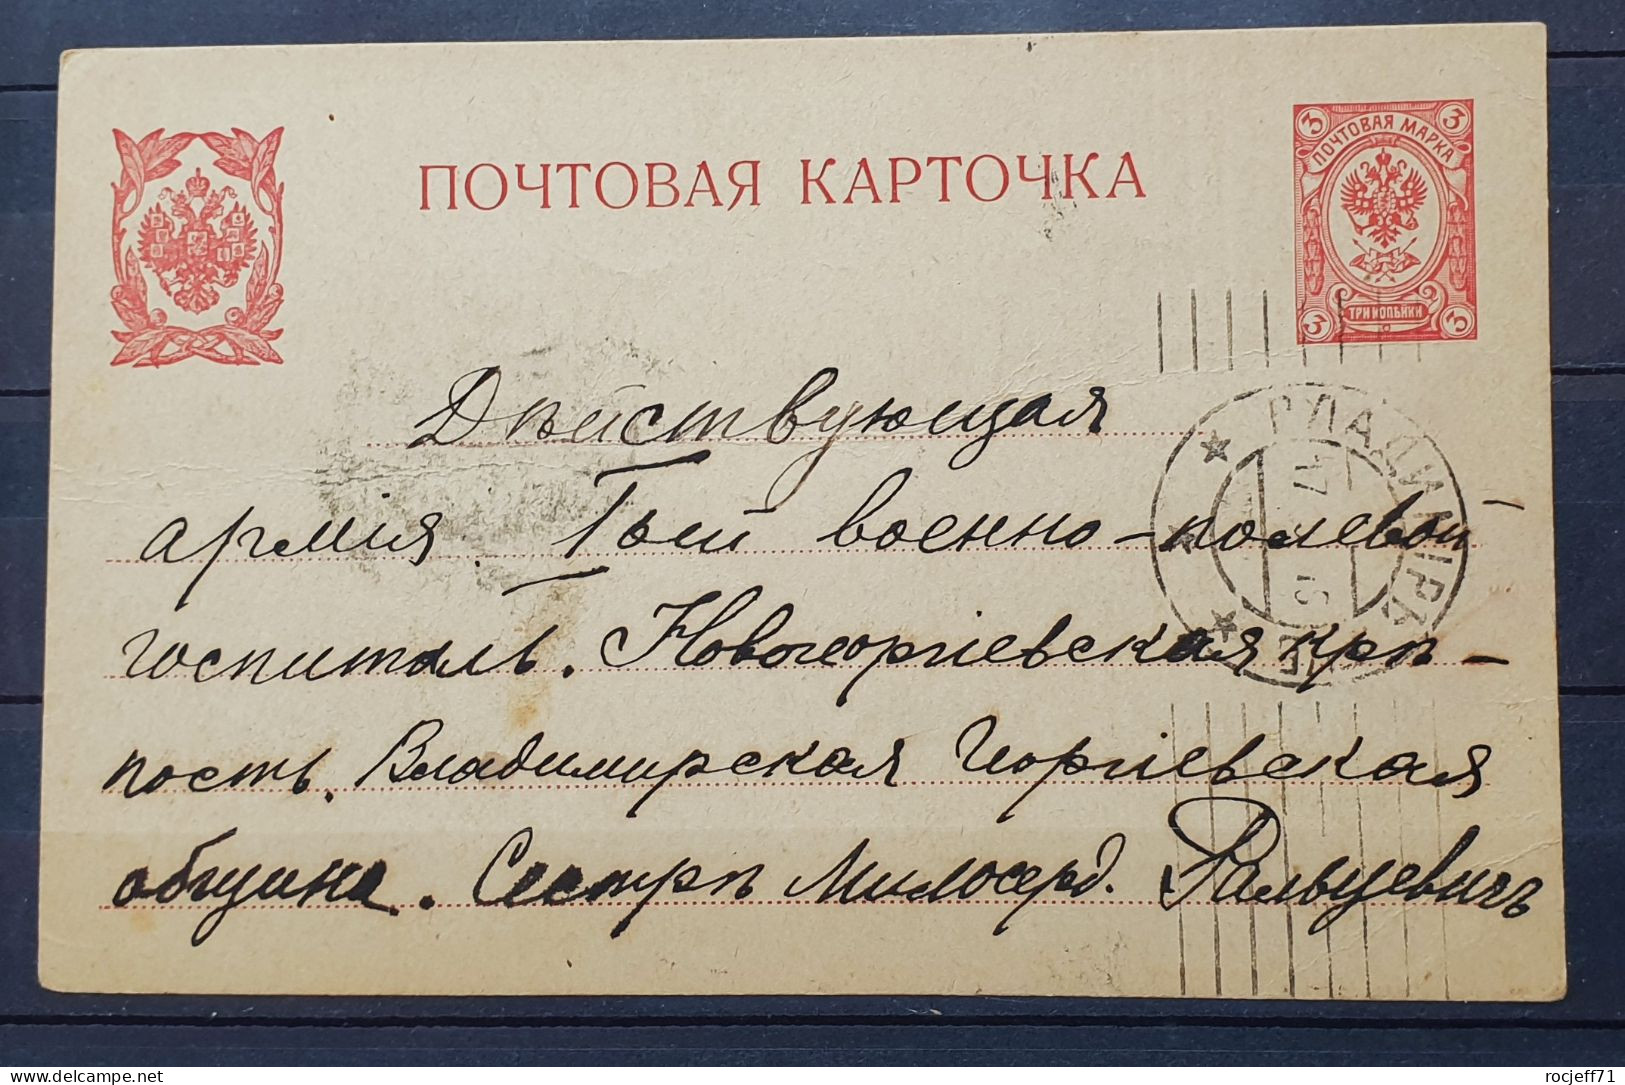 ПОЧТОВАЯ КАРТОЧКА
3 3
ПОЧТОВАЯ МАРКА
ТРИ КОПѢЙКИ
3 3
Дѣйствующая
армія. 1ый военно-полевой
госпиталь. Новогеоргіевская крѣ-
пость. Владимирская Георгіевская
община. Сестрѣ Милосерд. Ральцевичъ
ВЛАДИМІРЪ
rocjeff71